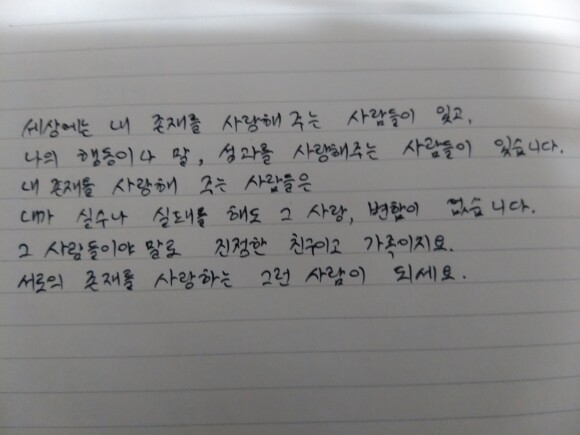 세상에는 내 존재를 사랑해 주는 사람들이 있고,
나의 행동이나 말, 성과를 사랑해주는 사람들이 있습니다.
내 존재를 사랑해 주는 사람들은
내가 실수나 실패를 해도 그 사랑, 변함이 없습니다.
그 사람들이야 말로 진정한 친구이고 가족이지요.
서로의 존재를 사랑하는 그런 사람이 되세요.